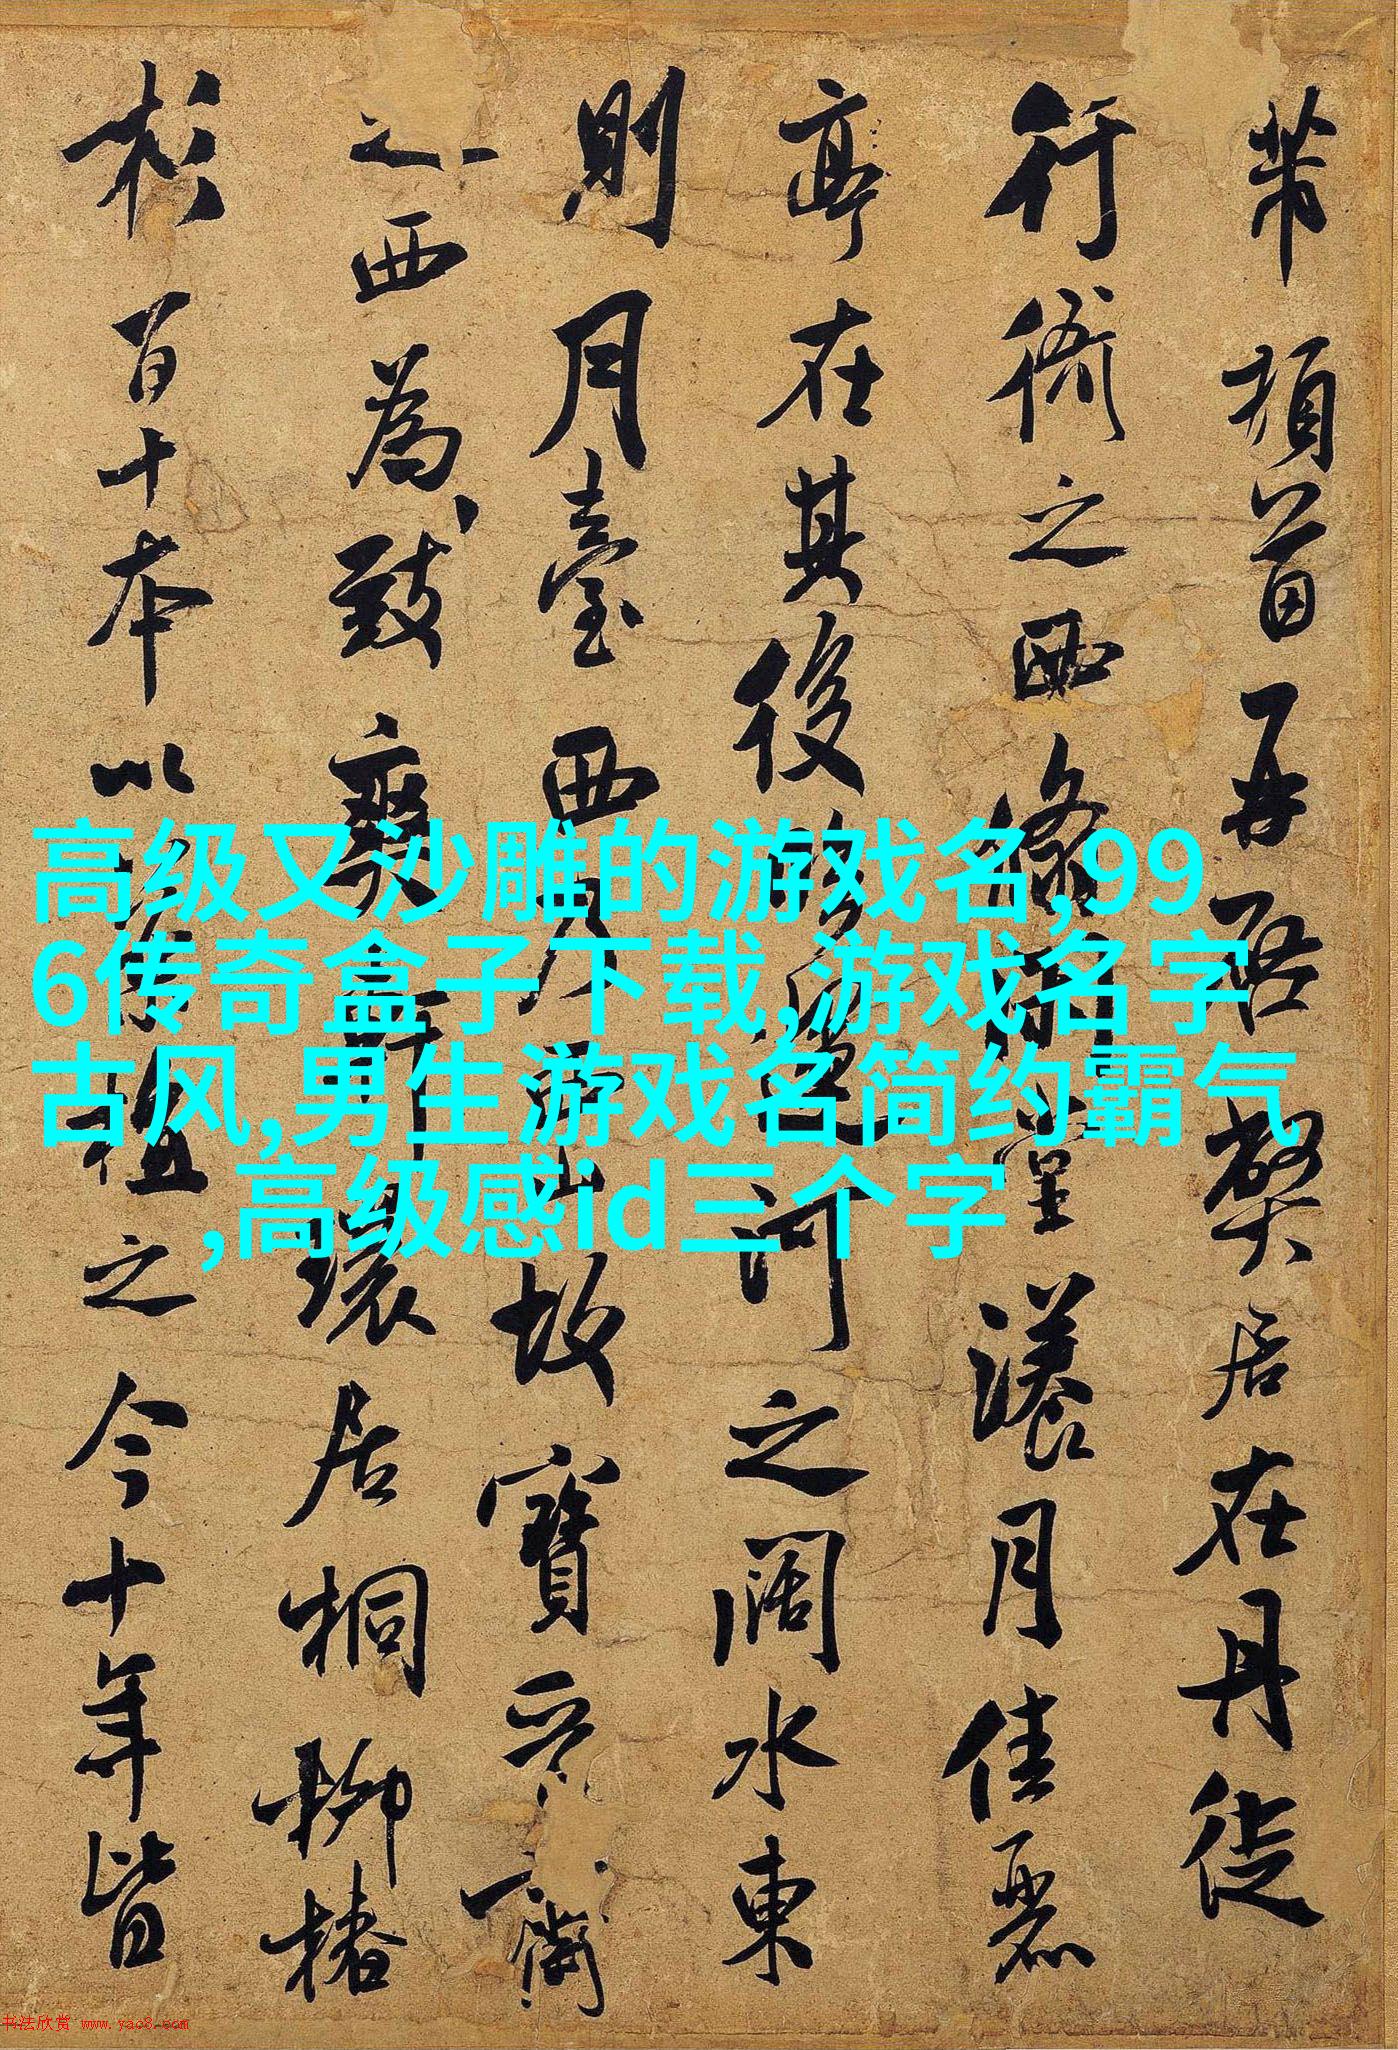 芾頓首再啓弊居在丹徒
行衙之西翛閒堂漾月佳麗
亭在其後臨運河之闊水東
則月臺西乃西山故寶晉齋
之西為致爽軒環居桐柳椿
杉百十本以植之今十年皆
高级又沙雕的游戏名,99
6传奇盒子下载,游戏名字
古风,男生游戏名简约霸气
,高级感id三个字
书法欣赏 www.yac8.com